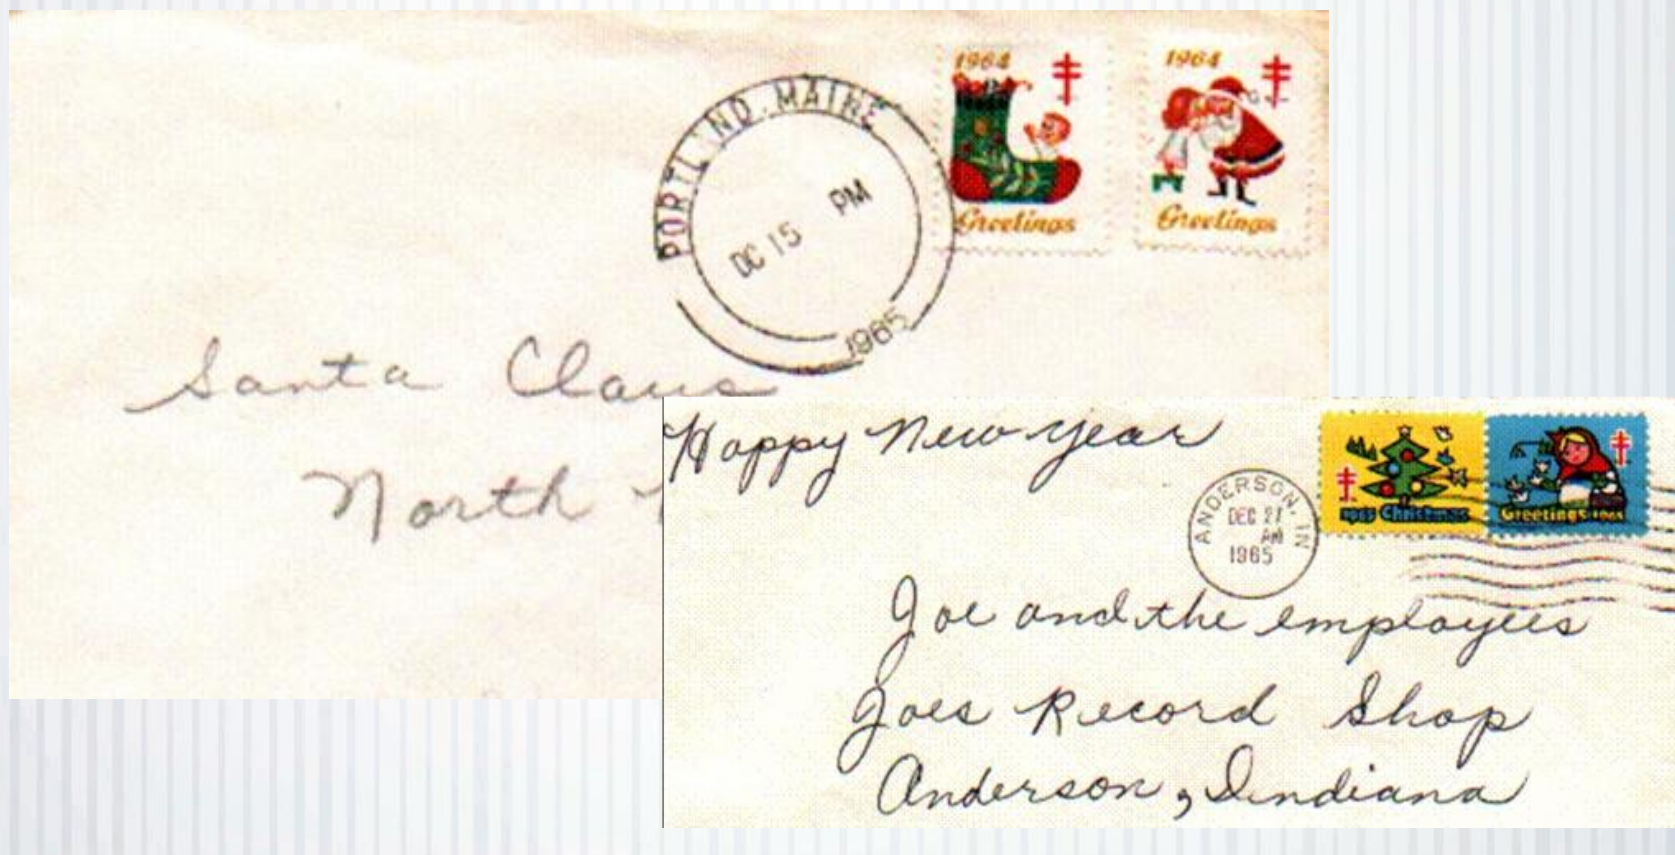 1964
Greetings
1964
Greetings
PORTLAND, MAINE
DC 15 PM
1965
Santa Claus
North
Happy New Year
Christmas
Greetings 1965
ANDERSON, IN
DEC 21
AM
1965
Joe and the employees
Joes Record Shop
Anderson, Indiana